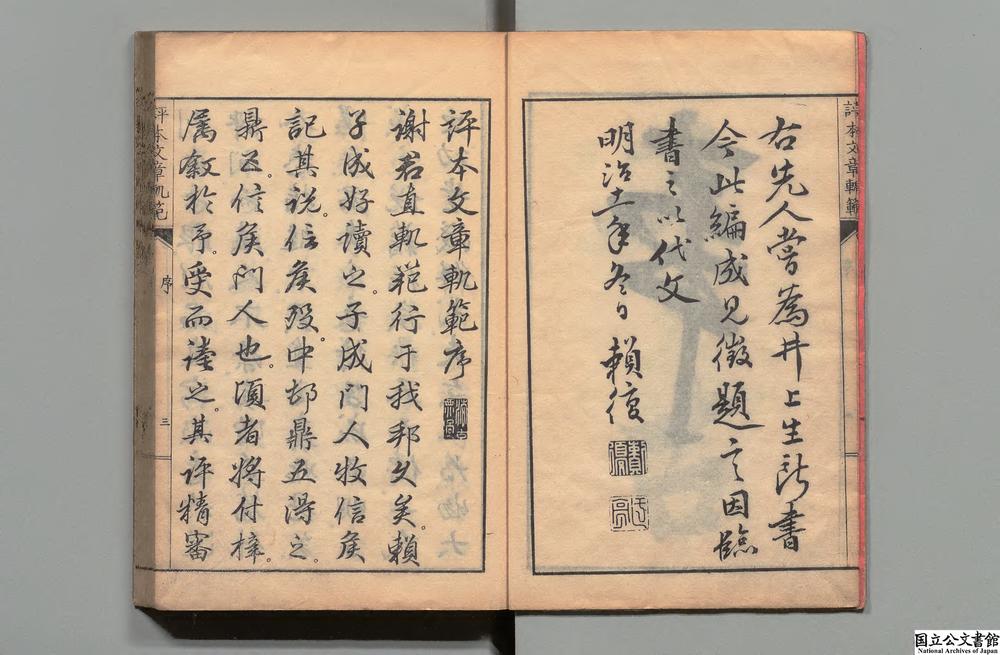 評本文章軌範
右先人嘗為井上生所書
今此編成見徵題言因臨
書之以代文
明治十一年冬日 賴復
評本文章軌範序
謝君直軌範行于我邦久矣。賴
子成好讀之。子成門人牧信矦
記其說。信矦歿。中邨鼎五得之。
鼎五。信矦門人也。頃者將付梓。
屬敘於予。受而讀之。其評精審
評本文章軌範
序
三
国立公文書館
National Archives of Japan